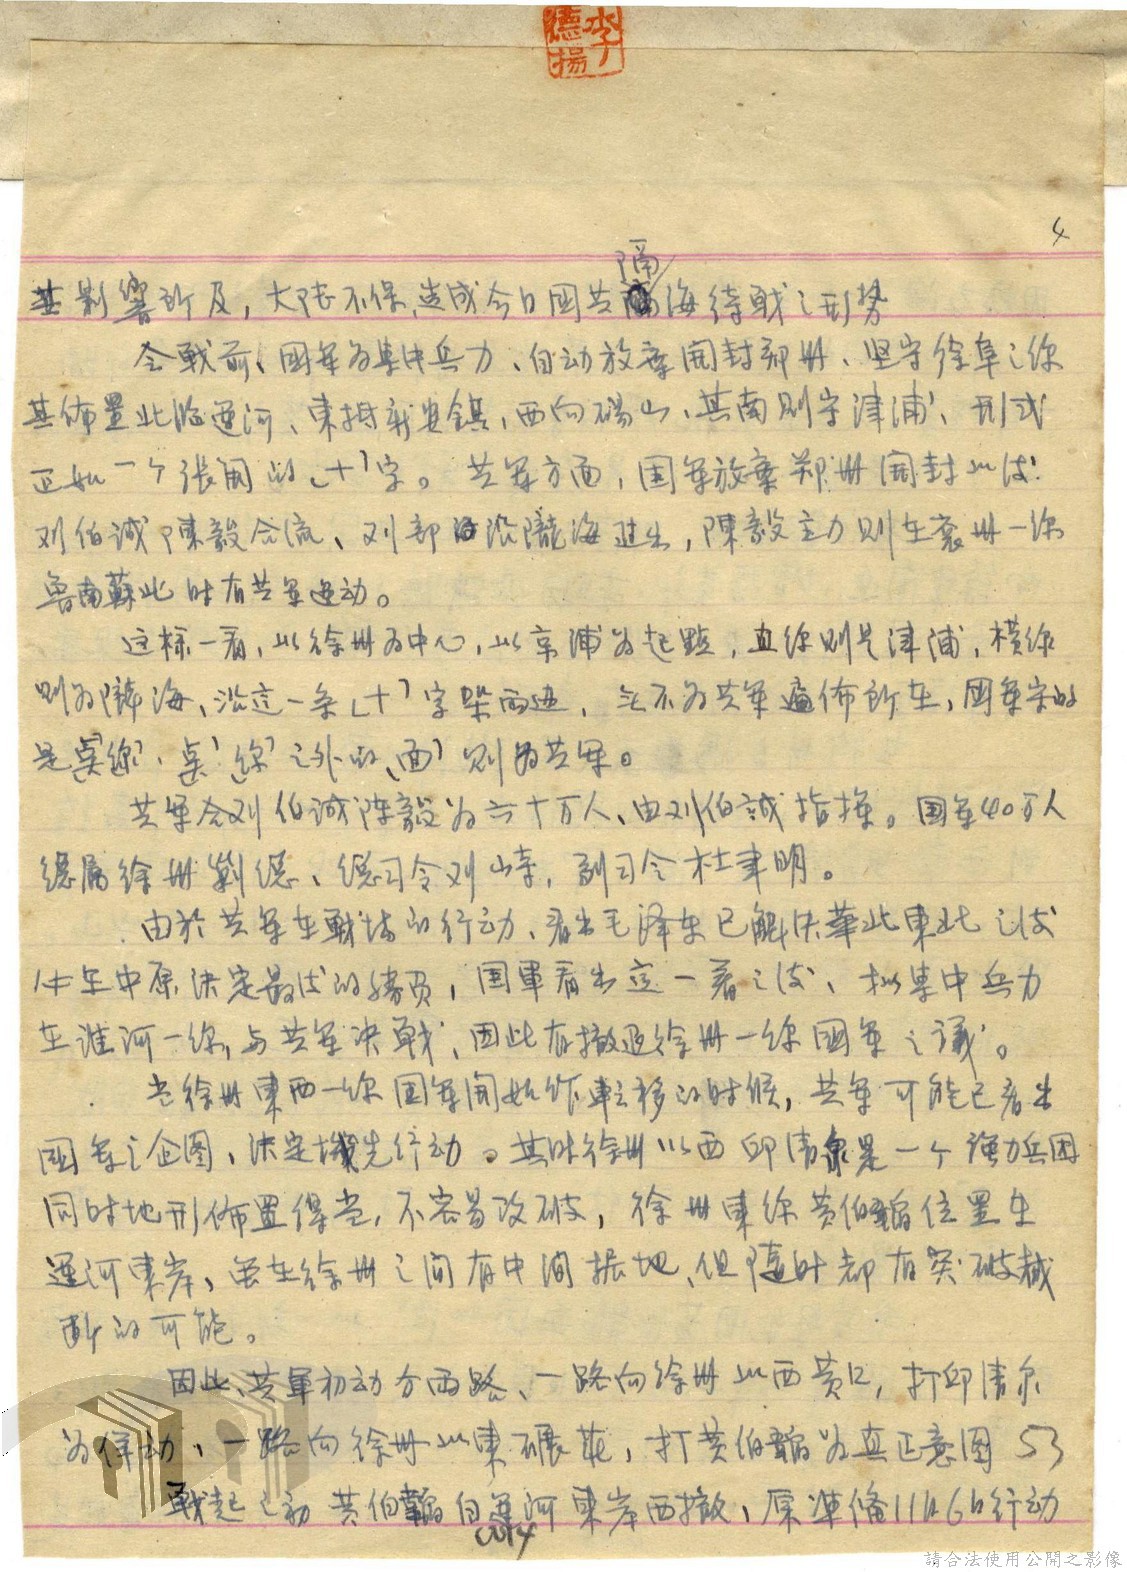 李德揚
4
其影響所及，大陸不保，造成今日國共隔海待戰之形勢
会戰前、國軍为集中兵力、自动放棄開封郑州、坚守徐阜之線
其佈置北临运河、東抵新安鎮，西向碭山、其南则守津浦、形式
正如一个張開的「十」字。共軍方面，国軍放棄鄭州開封以後
刘伯诚陳毅合流、刘部沿隴海进出，陳毅主力则在袞州一線
魯南蘇北时有共軍运动。
这样一看，以徐州为中心，以京浦为起點，直線则是津浦，横線
则为隴海、沿这一条「十」字架两边、無不为共軍遍佈所在，國軍守的
是「点」「線」、「点」「線」之外的「面」则为共軍。
共軍合刘伯诚陳毅为六十万人、由刘伯誠指揮。国軍40万人
總属徐州剿總、總司令刘峙，副司令杜聿明。
由於共軍在戰場的行动、看出毛泽东已解决華北東北之後
住在中原决定最后的勝負，国軍看出这一着之後、拟集中兵力
在淮河一線，与共軍决戰、因此有撤退徐州一線國軍之議。
当徐州東西一線国軍開始作轉移的时候，共軍可能已看出
國軍之企圖、决定機先行动。其时徐州以西邱清泉是一个强力兵团
同时地形佈置得当，不容易攻破，徐州東線黄伯韜位置在
運河東岸、虽在徐州之间有中间据地、但隨时都有突破截
断的可能。
因此、共軍初动分两路、一路向徐州以西黄口，打邱清泉
为佯动、一路向徐州以東碾莊，打黄伯韜为真正意图 53
戰起之初黄伯韜自運河東岸西撤，原準備11月6日行动
0014
請合法使用公開之影像